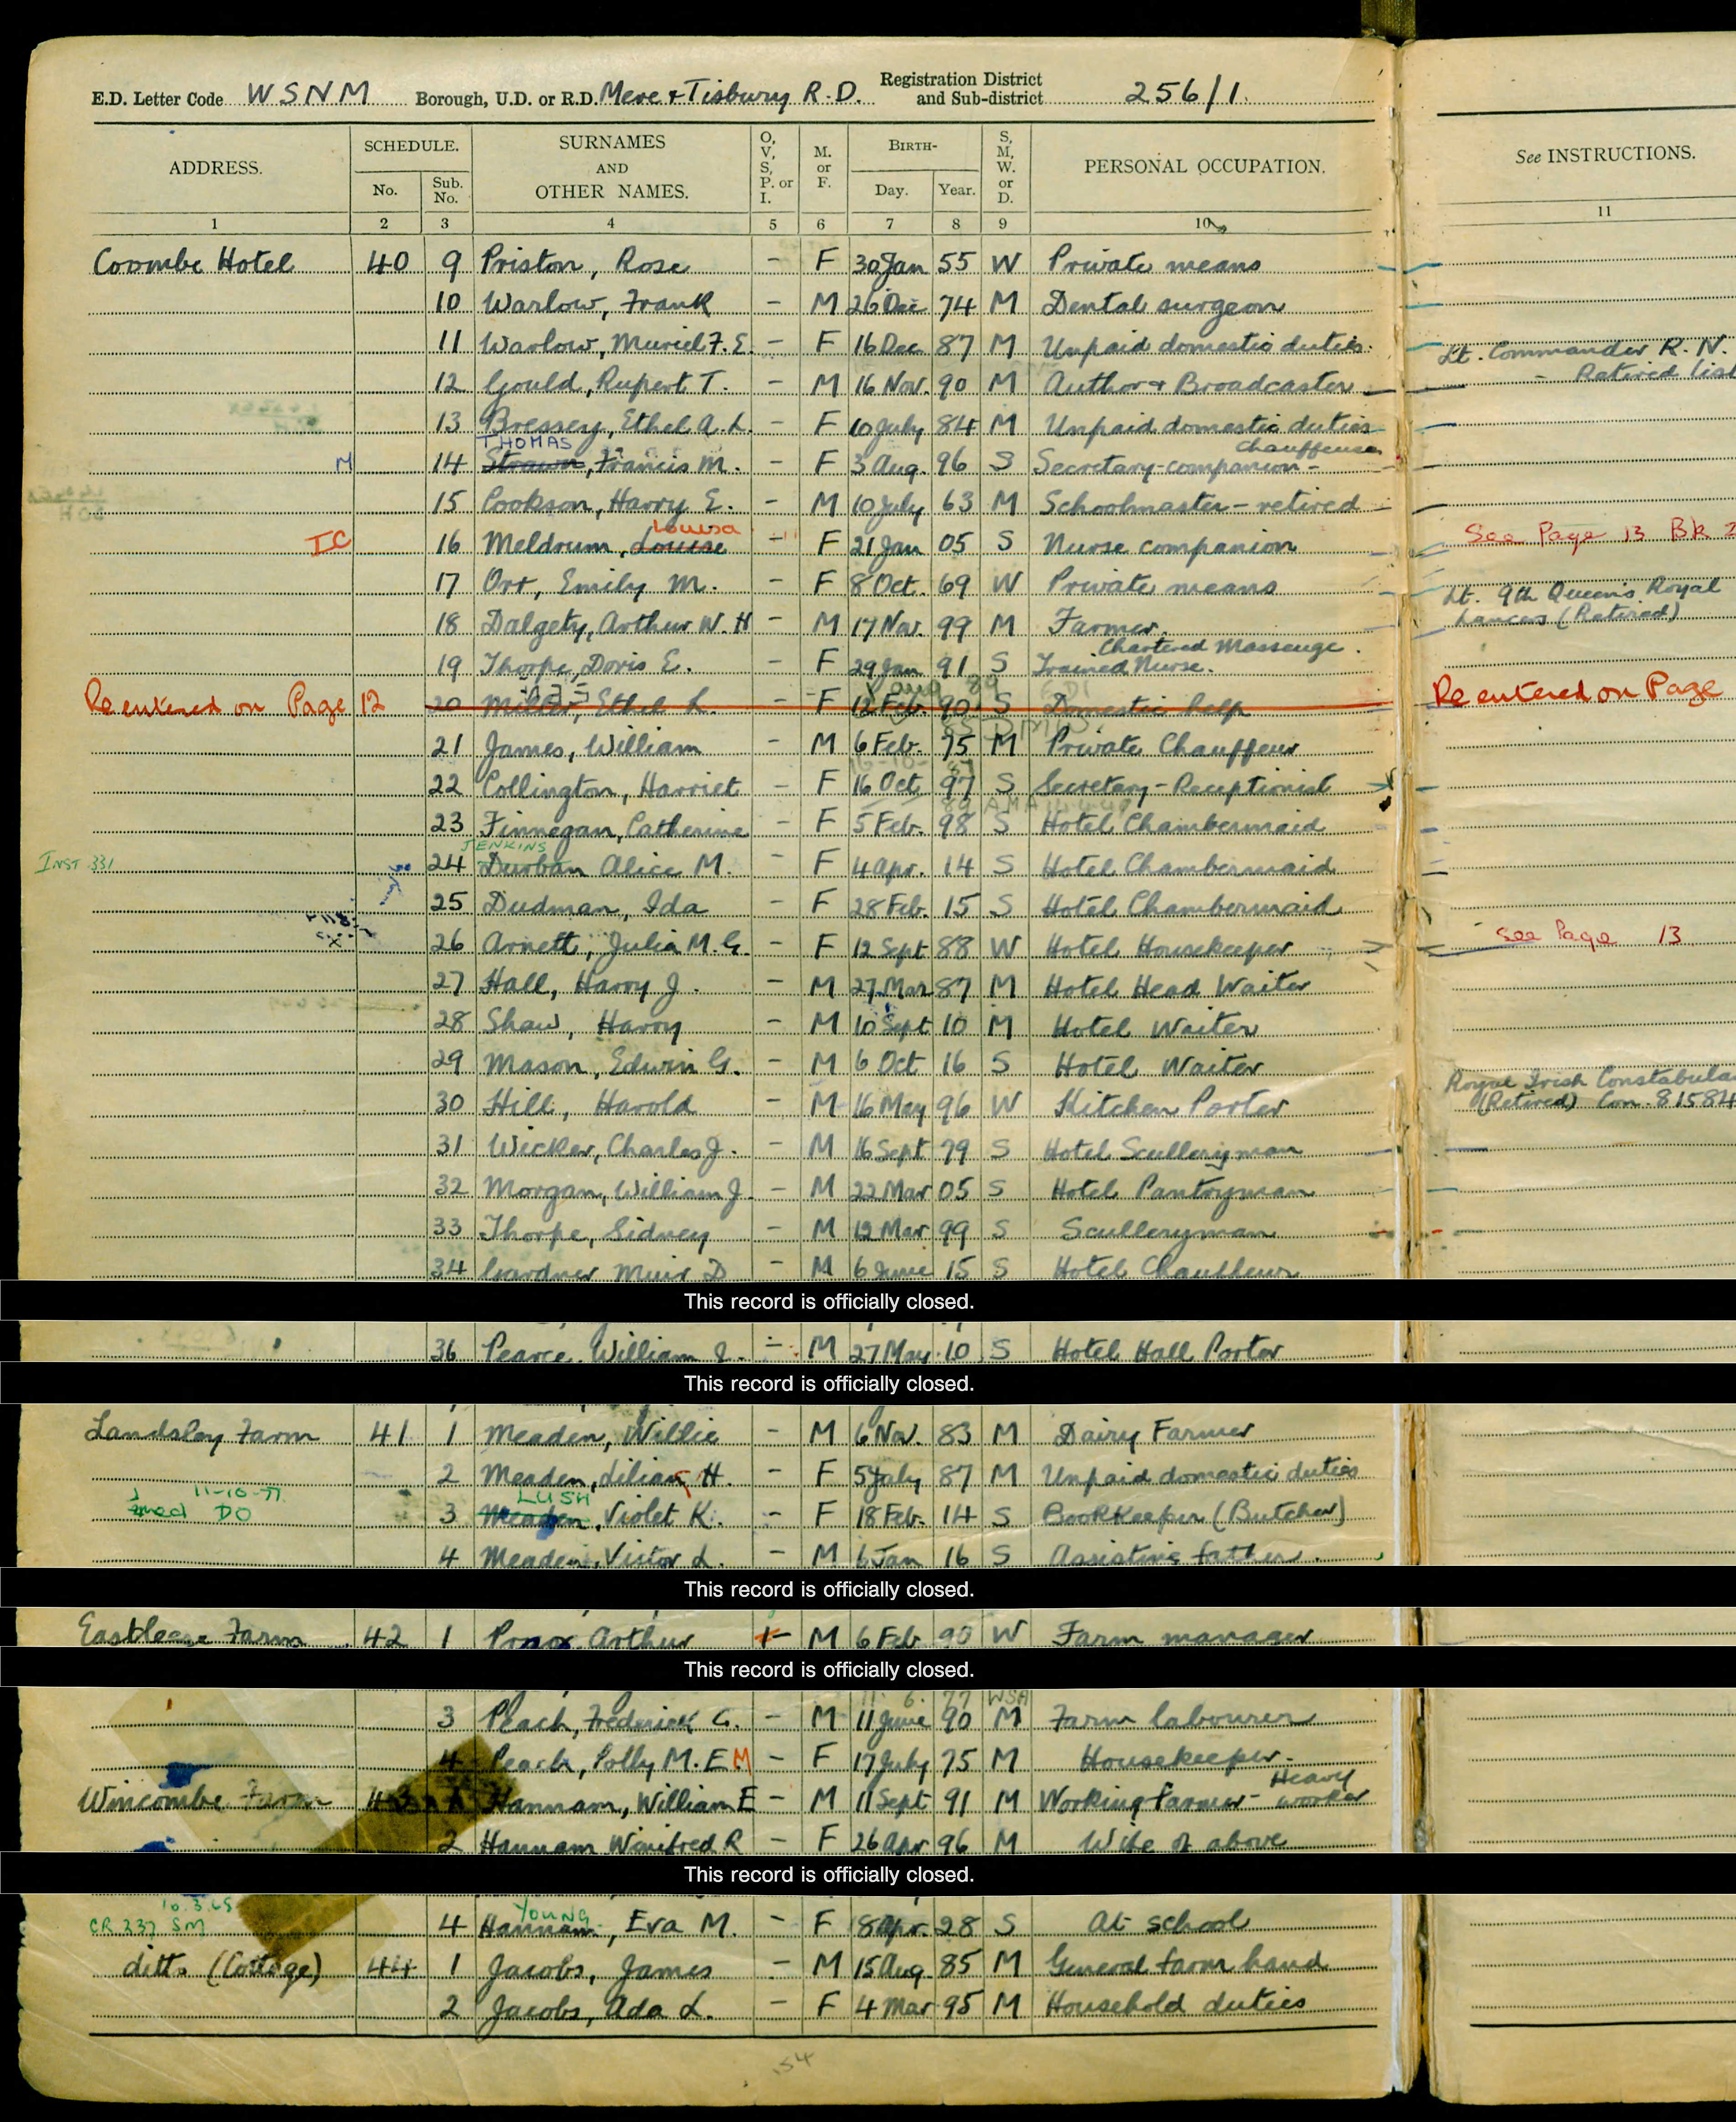 E.D. Letter Code WSNM Borough, U.D. or R.D. Mere & Tisbury R.D. Registration District and Sub-district 256/1
ADDRESS. SCHEDULE. No. Sub. No. SURNAMES AND OTHER NAMES. O, V, S, P. or I. M. or F. BIRTH- Day. Year. S, M, W. or D. PERSONAL OCCUPATION. See INSTRUCTIONS.
1 2 3 4 5 6 7 8 9 10 11
Coombe Hotel 40 9 Priston, Rose - F 30 Jan 55 W Private means
10 Warlow, Frank - M 26 Dec 74 M Dental surgeon
11 Warlow, Muriel F. E. - F 16 Dec 87 M Unpaid domestic duties. Lt. Commander R. N.
12 Gould, Rupert T. - M 16 Nov. 90 M Author & Broadcaster - Retired list
13 Bressey, Ethel A. L. - F 10 July 84 M Unpaid domestic duties
THOMAS Chauffeuse
M 14 Strawn, Francis M. - F 3 Aug. 96 S Secretary-companion -
15 Cookson, Harry E. - M 10 July 63 M Schoolmaster - retired
Louisa
IC 16 Meldrum, Louise - F 21 Jan 05 S Nurse companion See Page 13 Bk 2
17 Orr, Emily M. - F 8 Oct. 69 W Private means Lt. 9th Queen's Royal
18 Dalgety, Arthur W. H - M 17 Nov. 99 M Farmer. Lancers (Retired)
Chartered Masseuge.
19 Thorpe, Doris E. - F 29 Jan 91 S Trained Nurse.
Re entered on Page 12 20 Miller, Ethel L. - F 12 Feb. 90 S Domestic help Re entered on Page
21 James, William - M 6 Feb. 75 M Private Chauffeur
16-10-
22 Collington, Harriet - F 16 Oct 97 S Secretary-Receptionist
23 Finnegan, Catherine - F 5 Feb. 98 S Hotel Chambermaid
JENKINS
INST 331 24 Durban Alice M. - F 4 Apr. 14 S Hotel Chambermaid
25 Dudman, Ida - F 28 Feb. 15 S Hotel Chambermaid
26 Arnett, Julia M. G. - F 12 Sept 88 W Hotel Housekeeper See Page 13
27 Hall, Harry J. - M 27 Mar 87 M Hotel Head Waiter
28 Shaw, Harry - M 10 Sept 10 M Hotel Waiter
29 Mason, Edwin G. - M 6 Oct 16 S Hotel Waiter Royal Irish Constabula
30 Hill, Harold - M 16 May 96 W Kitchen Porter (Retired) Con. 81584
31 Wicker, Charles J. - M 16 Sept 79 S Hotel Sculleryman
32 Morgan, William J. - M 22 Mar 05 S Hotel Pantryman
33 Thorpe, Sidney - M 12 Mar 99 S Sculleryman
34 Gardner Muir D - M 6 June 15 S Hotel Chauffeur
This record is officially closed.
36 Pearce, William J. - M 27 May 10 S Hotel Hall Porter
This record is officially closed.
Landsley Farm 41 1 Meaden, Willie - M 6 Nov. 83 M Dairy Farmer
2 Meaden, Lilian H. - F 5 July 87 M Unpaid domestic duties
11-10-77 LUSH
DO 3 Meaden, Violet K. - F 18 Feb. 14 S Bookkeeper (Butcher)
4 Meaden, Victor L. - M 6 Jan 16 S Assisting father.
This record is officially closed.
Eastlease Farm 42 1 Arthur - M 6 Feb 90 W Farm manager
This record is officially closed.
11. 6. 77 WSA
3 Peach, Frederick G. - M 11 June 90 M Farm labourer
4 Peach, Polly M. E M - F 17 July 75 M Housekeeper.
Heavy
Wincombe Farm 43 1 Hannam, William E - M 11 Sept 91 M Working farmer - worker
2 Hannam Winifred R - F 26 Apr 96 M Wife of above
This record is officially closed.
10.3.65 YOUNG
CR 337 SM 4 Hannam, Eva M. - F 8 Apr. 28 S At school
ditto (Cottage) 44 1 Jacobs, James - M 15 Aug. 85 M General farm hand
2 Jacobs, Ada L. - F 4 Mar 95 M Household duties